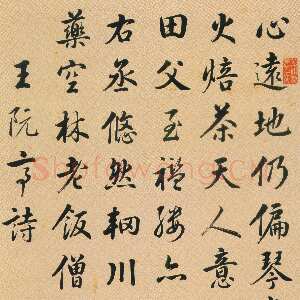 心遠地仍偏琴
火焙茶天人意
田父至襤褸亦
右丞悠然輞川
藥空林老飯僧
王阮亭詩